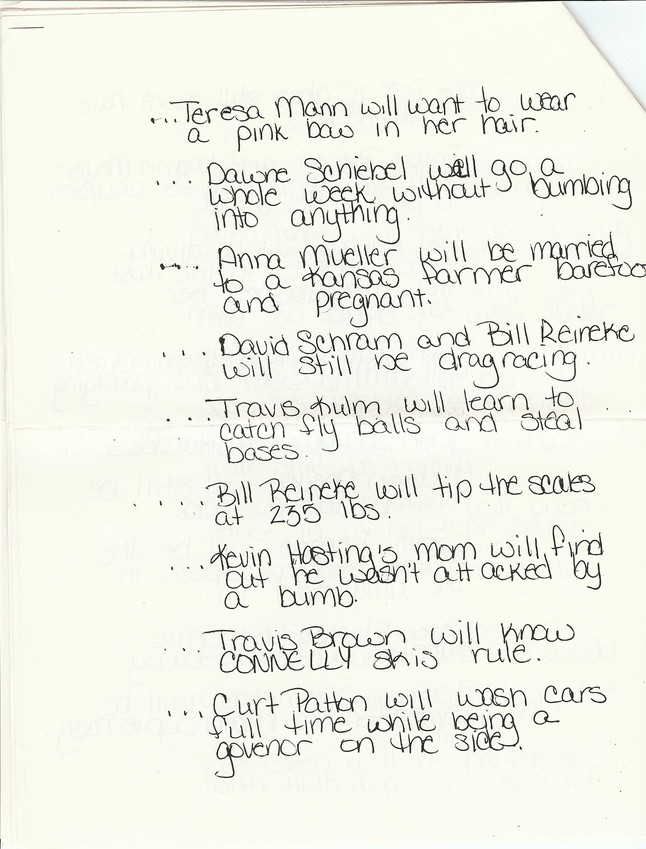 ...Teresa Mann will want to wear
a pink bow in her hair.
... Dawne Schiebel will go a
whole week without bumbing
into anything.
... Anna Mueller will be married
to a Kansas farmer barefoo
and pregnant.
... David Schram and Bill Reineke
will still be dragracing.
... Travis Kulm will learn to
catch fly balls and steal
bases.
.... Bill Reineke will tip the scales
at 235 lbs.
... Kevin Hasting's mom will find
out he wasn't attacked by
a bumb.
... Travis Brown will know
CONNELLY skis rule.
... Curt Patton will wash cars
full time while being a
govenor on the side.